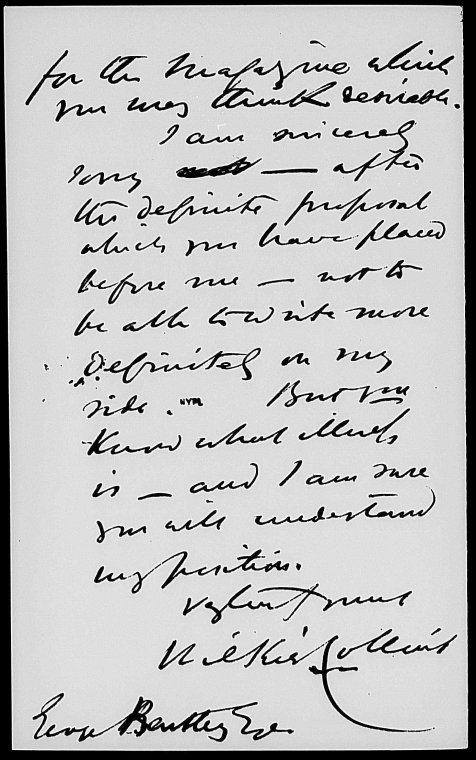 for the Magazine which
you may think desirable.
I am sincerely
sorry — after
the definite proposal
which you have placed
before me — not to
be able to write more
definitely on my
side. NYPL But you
know what illness
is — and I am sure
you will understand
my position.
truly yours
Wilkie Collins
George Bentley Esqre